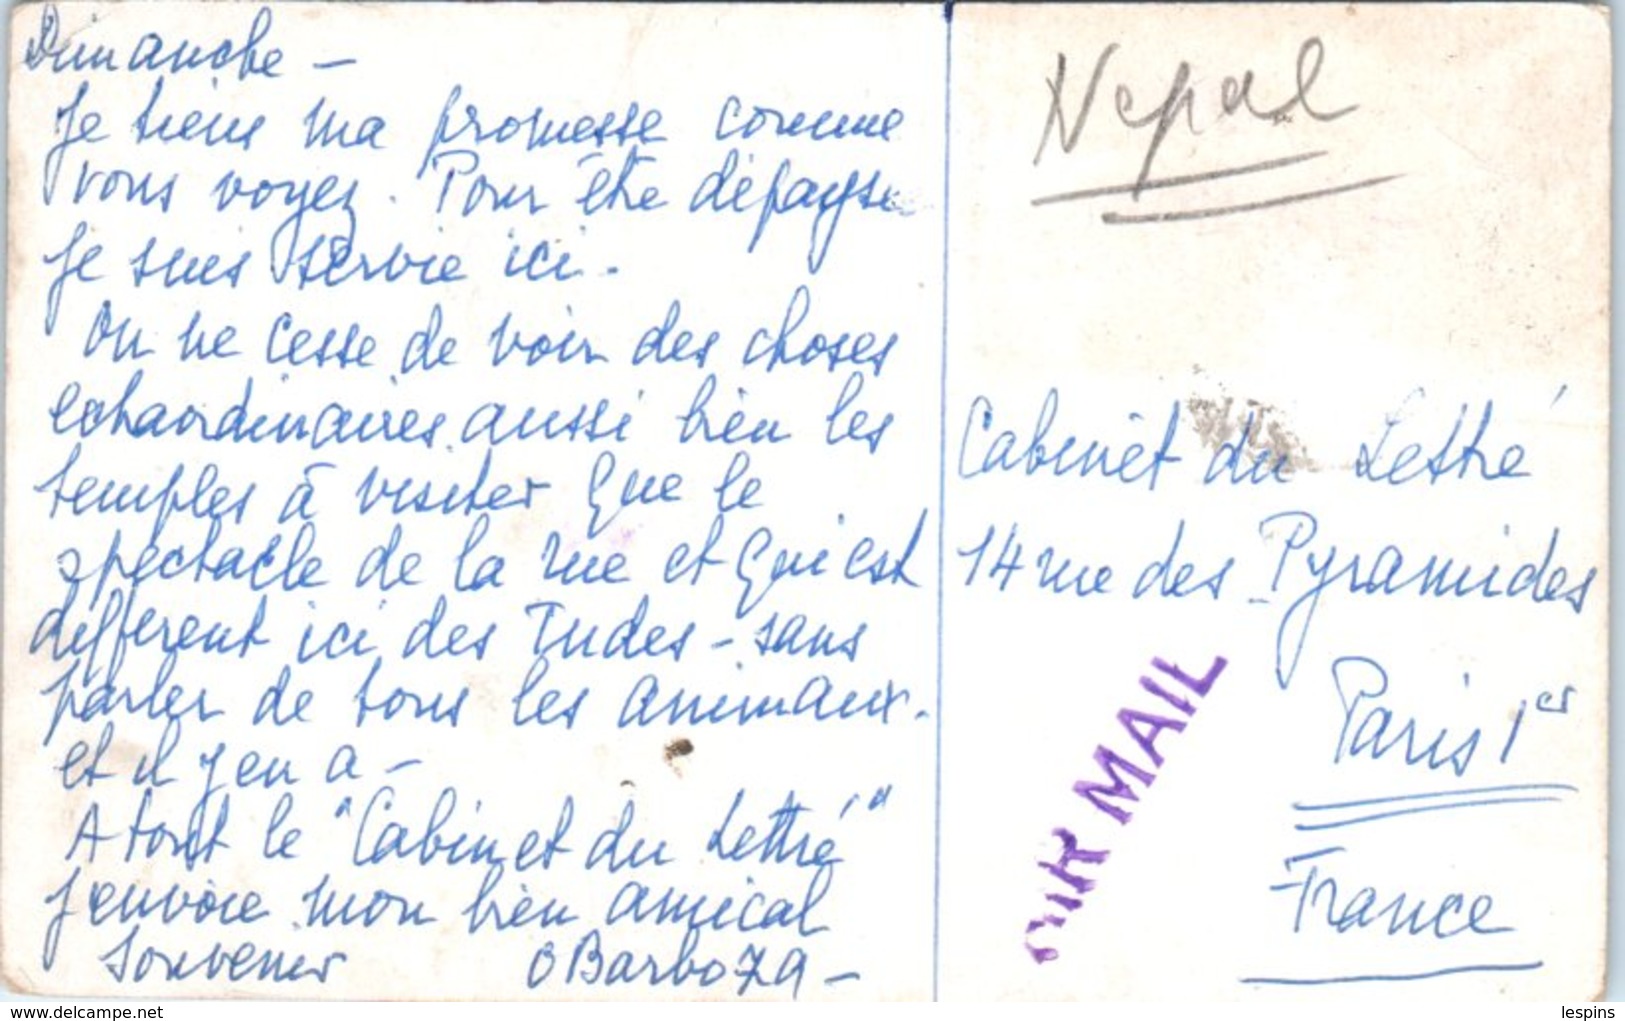 Dimanche -
Je tiens ma promesse comme
vous voyez. Pour être dépaysée
je suis servie ici.
On ne cesse de voir des choses
extraordinaires aussi bien les
temples à visiter que le
spectacle de la rue et qui est
différent ici des Indes - sans
parler de tous les animaux.
et il y en a -
A tout le "Cabinet du Lettré"
j'envoie mon bien amical
souvenir O Barboza -
Nepal
Cabinet du Lettré
14 rue des Pyramides
Paris 1er
France
AIR MAIL
www.delcampe.net
lespins